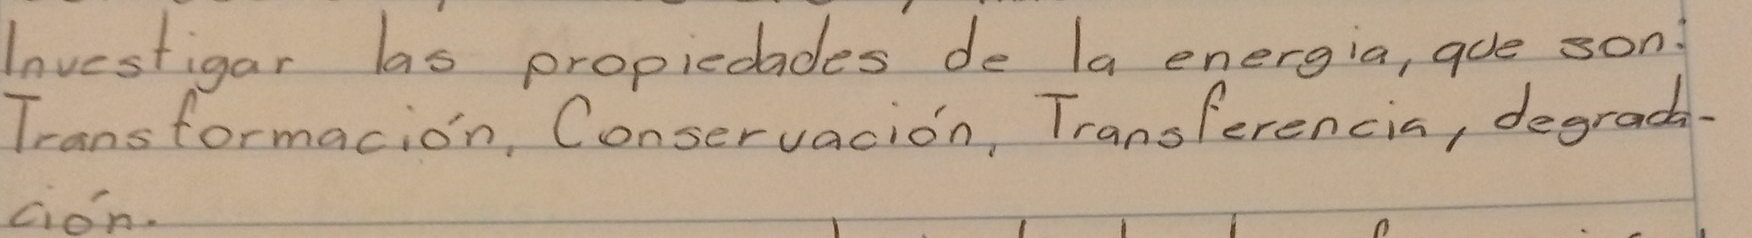 Investigar las propiedades de la energia, que son:
Transformación, Conservación, Transferencia, degrada-
ción.